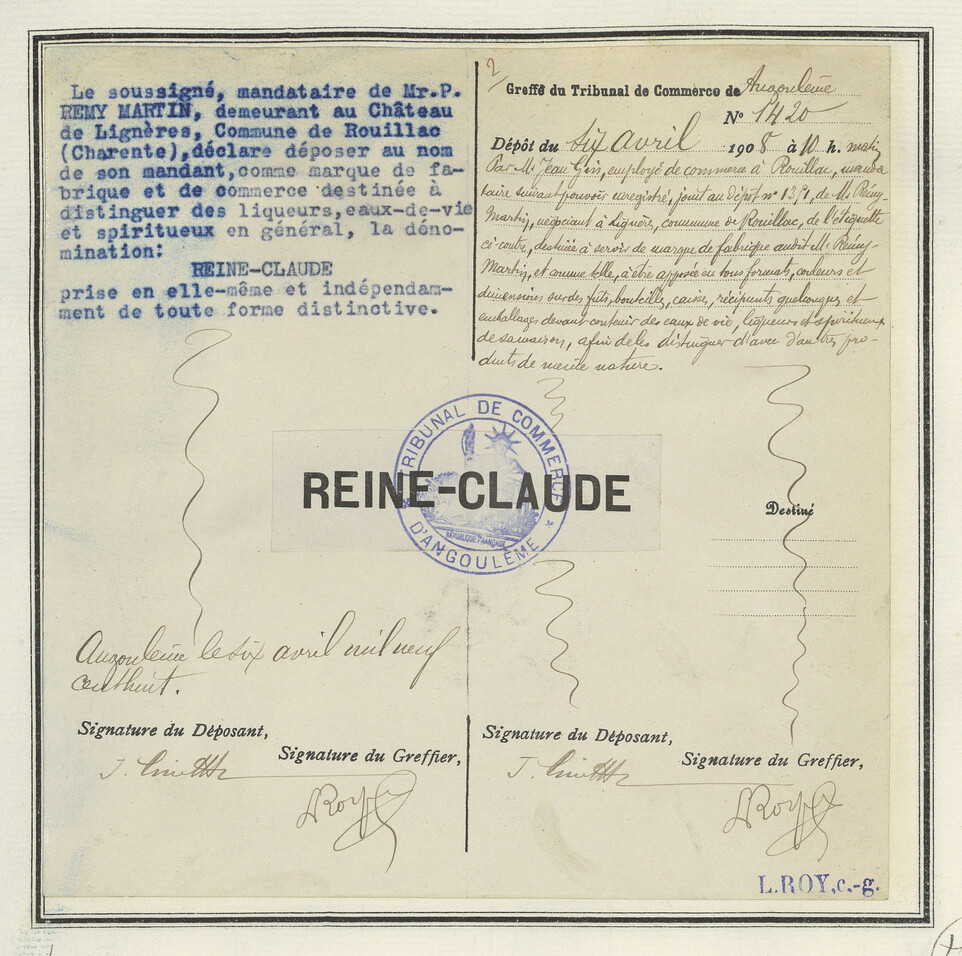 Le soussigné, mandataire de Mr.P.
REMY MARTIN, demeurant au Château
de Lignères, Commune de Rouillac
(Charente),déclare déposer au nom
de son mandant,comme marque de fa-
brique et de commerce destinée à
distinguer des liqueurs,eaux-de-vie
et spiritueux en général, la déno-
mination:
REINE-CLAUDE
prise en elle-même et indépendam-
ment de toute forme distinctive.
2
Greffe du Tribunal de Commerce de Angoulême
N° 1420
Dépôt du six avril 1908 à 10 h. matin
Par Mr Jean employé de commerce à Rouillac, manda
taire suivant pouvoir enregistré, joint au dépôt n° de Mr Rémy-
Martin, négociant à Lignères, commune de Rouillac, de l'étiquette
ci-contre, destinée à servir de marque de fabrique audit Mr Rémy-
Martin, et comme telle, à être apposée en tous formats, couleurs et
dimensions sur des fûts, bouteilles, caisses, récipients quelconques et
emballages devant contenir des eaux de vie, liqueurs et spiritueux
de sa maison, afin de les distinguer d'avec d'autres pro-
duits de même nature.
TRIBUNAL DE COMMERCE
REINE-CLAUDE
RÉPUBLIQUE FRANÇAISE
D'ANGOULÊME
Destiné
Angoulême le six avril mil neuf
cent huit.
Signature du Déposant,
Signature du Greffier,
Signature du Déposant,
Signature du Greffier,
LRoy
LRoy
L.ROY,c.-g.